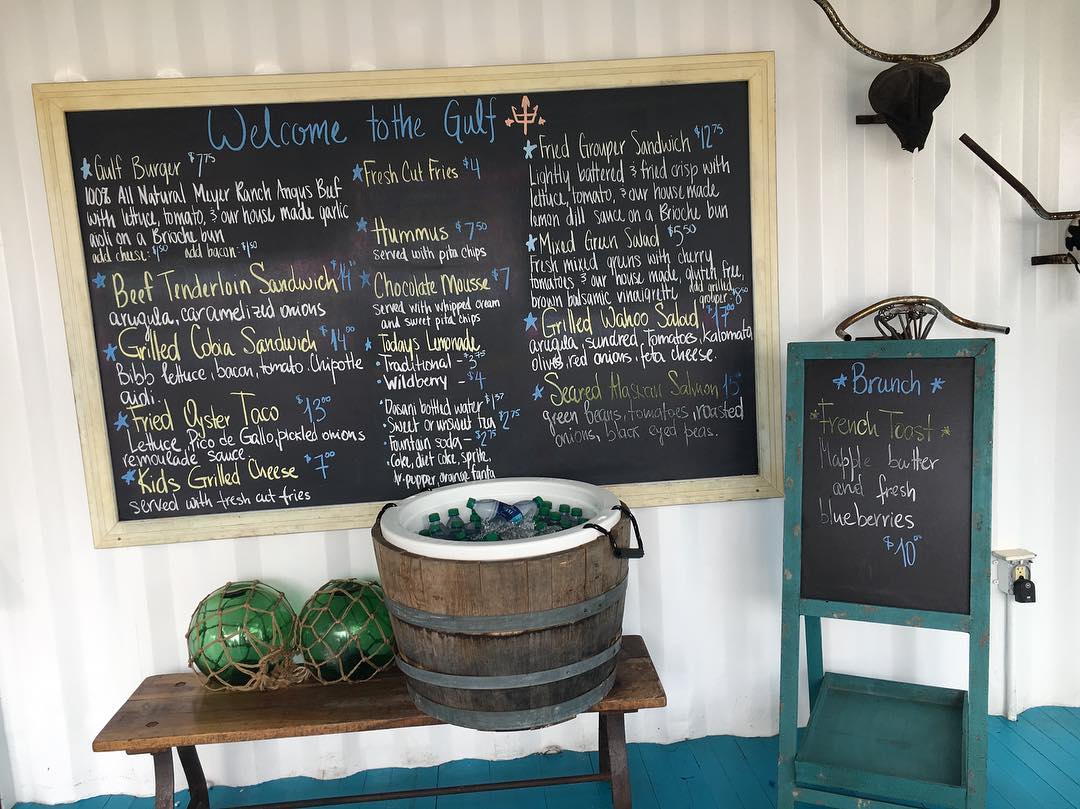 Welcome to the Gulf
Gulf Burger $7.75
100% All Natural Meyer Ranch Angus Beef
with lettuce, tomato, & our house made garlic
aioli on a Brioche bun
add cheese: $1.50 add bacon: $1.50
Beef Tenderloin Sandwich
arugula, caramelized onions
Grilled Cobia Sandwich $14.00
Bibb lettuce, bacon, tomato. Chipotle
aioli.
Fried Oyster Taco $13.00
Lettuce, Pico de Gallo, pickled onions
remoulade sauce.
Kids Grilled Cheese $7.00
served with fresh cut fries
Fresh Cut Fries $4
Hummus $7.50
served with pita chips
Chocolate Mousse $7
served with whipped cream
and sweet pita chips
Todays Lemonade
Traditional - $3.75
Wildberry - $4
Dasani bottled water
Sweet or unsweet tea $2.75
Fountain soda - $2.75
Coke, diet coke, sprite,
dr. pepper, orange fanta
Fried Grouper Sandwich $12.75
Lightly battered & fried crisp with
lettuce, tomato, & our house made
lemon dill sauce on a Brioche bun
Mixed Green Salad $5.50
Fresh mixed greens with cherry
tomatoes & our house made, gluten free,
brown balsamic vinaigrette add grilled
grouper: $8.50
Grilled Wahoo Salad
arugula, sundried, Tomatoes, Kalomata
olives, red onions, feta cheese.
Seared Alaskan Salmon
green beans, tomatoes, roasted
onions, black eyed peas.
Brunch
French Toast
Mapple butter
and fresh
blueberries
$10.00